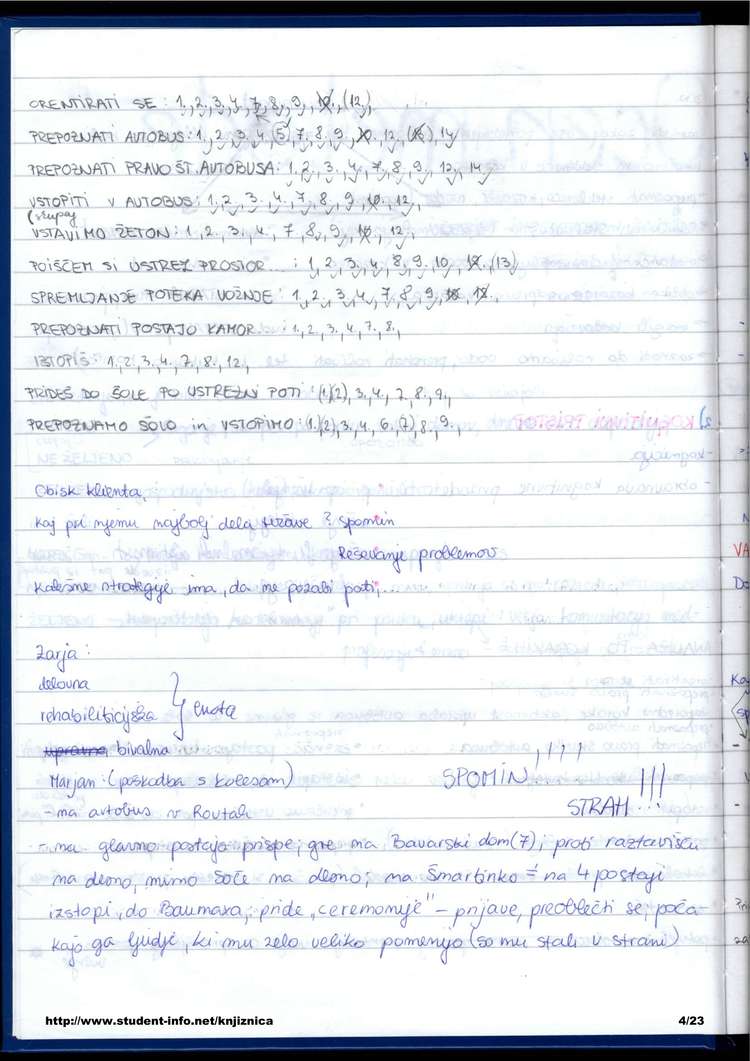 ORENTIRATI SE: 1., 2., 3., 4., 7., 8., 9., 10., (12.),
PREPOZNATI AVTOBUS: 1., 2., 3., 4., (5.), 7., 8., 9., 10., 12., (13.), 14.
PREPOZNATI PRAVO ŠT. AVTOBUSA: 1., 2., 3., 4., 7., 8., 9., 12., 14.
VSTOPITI V AVTOBUS: 1., 2., 3., 4., 7., 8., 9., 10., 12.,
VSTAVIMO ŽETON: 1., 2., 3., 4., 7., 8., 9., 10., 12.,
POIŠČEM SI USTREZ. PROSTOR...: 1., 2., 3., 4., 8., 9., 10., 12., (13.)
SPREMLJANJE POTEKA VOŽNJE: 1., 2., 3., 4., 7., 8., 9., 10., 12.,
PREPOZNATI POSTAJO KAMOR..: 1., 2., 3., 4., 7., 8.,
IZSTOPIŠ: 1., 2., 3., 4., 7., 8., 12.,
PRIDEŠ DO ŠOLE PO USTREZNI POTI: (1.)(2.), 3., 4., 7., 8., 9.,
PREPOZNAMO ŠOLO in VSTOPIMO: (1.)(2.), 3., 4., 6., (7.), 8., 9.,
Obisk klienta,
kaj pri njemu najbolj dela težave? spomin
Reševanje problemov
Kakšne strategije ima, da ne pozabi poti,...
Zarja:
delovna
rehabiliticijska } enota
bivalna
Marjan: (poškodba s kolesom)
SPOMIN, !!!
- na avtobus v Rovtah
STRAH...!!!
- na glavno postajo prispe; gre na Bavarski dom (7); proti raztavišču
na desno, mimo Soče na desno; na Šmartinko = na 4 postaji
izstopi, do Baumaxa; pride „ceremonije" - prijave, preobleči se, poča-
kajo ga ljudje, ki mu zelo veliko pomenijo (so mu stali v strani)
http://www.student-info.net/knjiznica
4/23